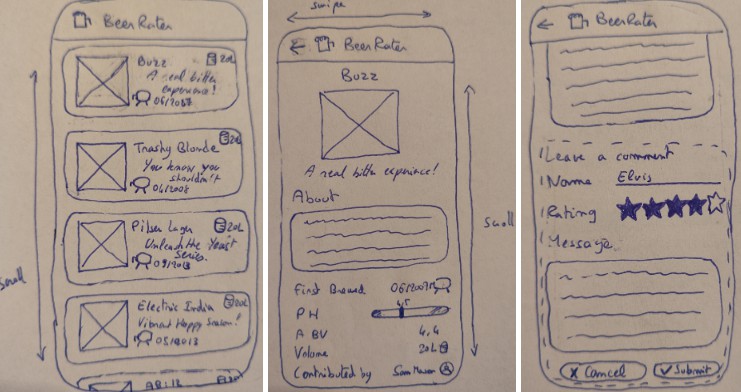 BeerRater
Buzz
20L
A real bitter
experience!
Trashy Blonde
20L
You know you
shouldn't
04/2008
Pilsen Lager
20L
Unleash the Yeast
Series.
09/2013
Electric India
20L
Vibrant Hoppy Saison!
05/2013
AB:12
scroll
swipe
BeerRater
Buzz
A real bitter experience!
About
First Brewed
PH
4.5
ABV
4,4
Volume
20L
Contributed by
Sam Mason
scroll
BeerRater
Leave a comment
Name
Elvis
Rating
Message
x Cancel
✓ Submit